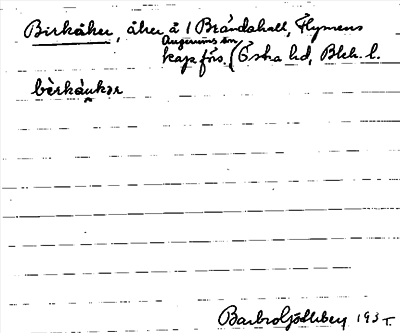 Birkåker, åker å 1 Brändahall, Flymens
Augerums sn
kapförs. (Östra hd, Blek. l.
bèrkåukər
Barbro Ljøstleberg 1937.